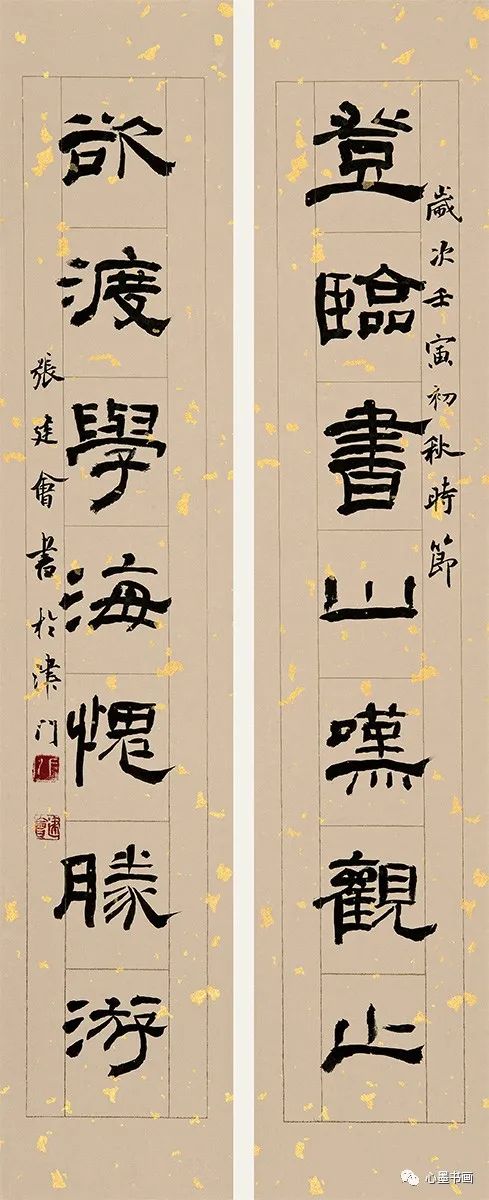 歲次壬寅初秋時節
登臨書山嘆觀止
欲渡學海愧勝游
張建會書於津門
建會
心墨书画